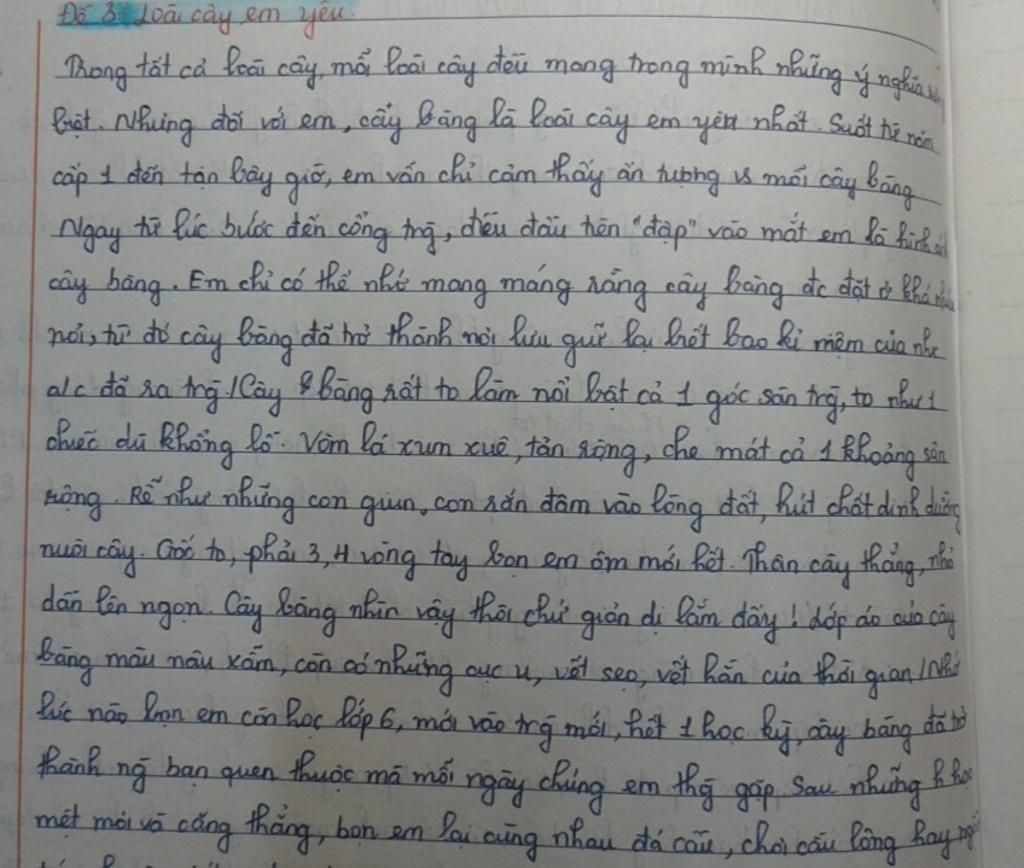 Đề 3: Loài cây em yêu.
Trong tất cả loài cây, mỗi loài cây đều mang trong mình những ý nghĩa
biệt. Nhưng đối với em, cây bàng là loài cây em yêu nhất. Suốt từ năm
cấp 1 đến tận bây giờ, em vẫn chỉ cảm thấy ấn tượng vs mỗi cây bàng
Ngay từ lúc bước đến cổng trg, điều đầu tiên "đập" vào mắt em là hình
cây bàng. Em chỉ có thể nhớ mang máng rằng cây bàng đc đặt ở khá
nơi, từ đó cây bàng đã trở thành nơi lưu giữ lại hết bao kỉ niệm của
a/c đã ra trg. / Cây bàng rất to làm nổi bật cả 1 góc sân trg, to như 1
chiếc dù khổng lồ. Vòm lá xum xuê, tán rộng, che mát cả 1 khoảng sân
rộng. Rễ như những con giun, con rắn đâm vào lòng đất, hút chất dinh dưỡng
nuôi cây. Gốc to, phải 3, 4 vòng tay bọn em ôm mới hết. Thân cây thẳng, nhỏ
dần lên ngọn. Cây bàng nhìn vậy thôi chứ giản dị lắm đấy! Lớp áo của cây
bàng màu nâu xẫm, còn có những cục u, vết sẹo, vết hằn của thời gian. / Nhớ
lúc nào bọn em còn học lớp 6, mới vào trg mới, hết 1 học kỳ, cây bàng đã trở
thành ng bạn quen thuộc mà mỗi ngày chúng em thg gặp. Sau những h học
mệt mỏi và căng thẳng, bọn em lại cùng nhau đá cầu, chơi cầu lông hay